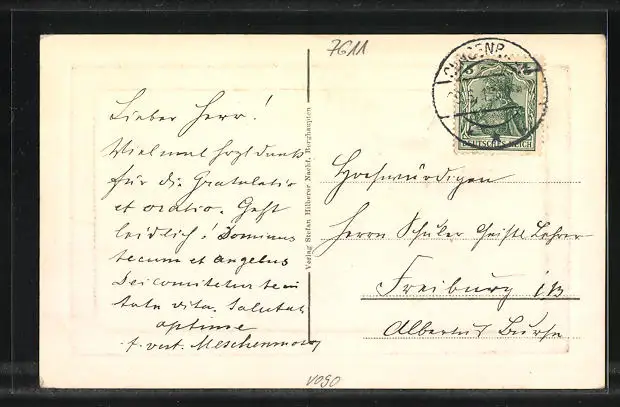 7611
DEUTSCHES REICH
Lieber Herr!
Viel mal herzl dank
für die Gratulatio
et oratio. Geht
leidlich! Dominus
tecum et angelus
Dei comitetur te in
tota vita. Salutat
optime
t. vest. Meschenmoser
Verlag Stefan Hilberer Nachf. Berghaupten
Hochwürdigen
Herrn Schüler Geistl. Lehrer
Freiburg i/B
Albertus Burse
V090